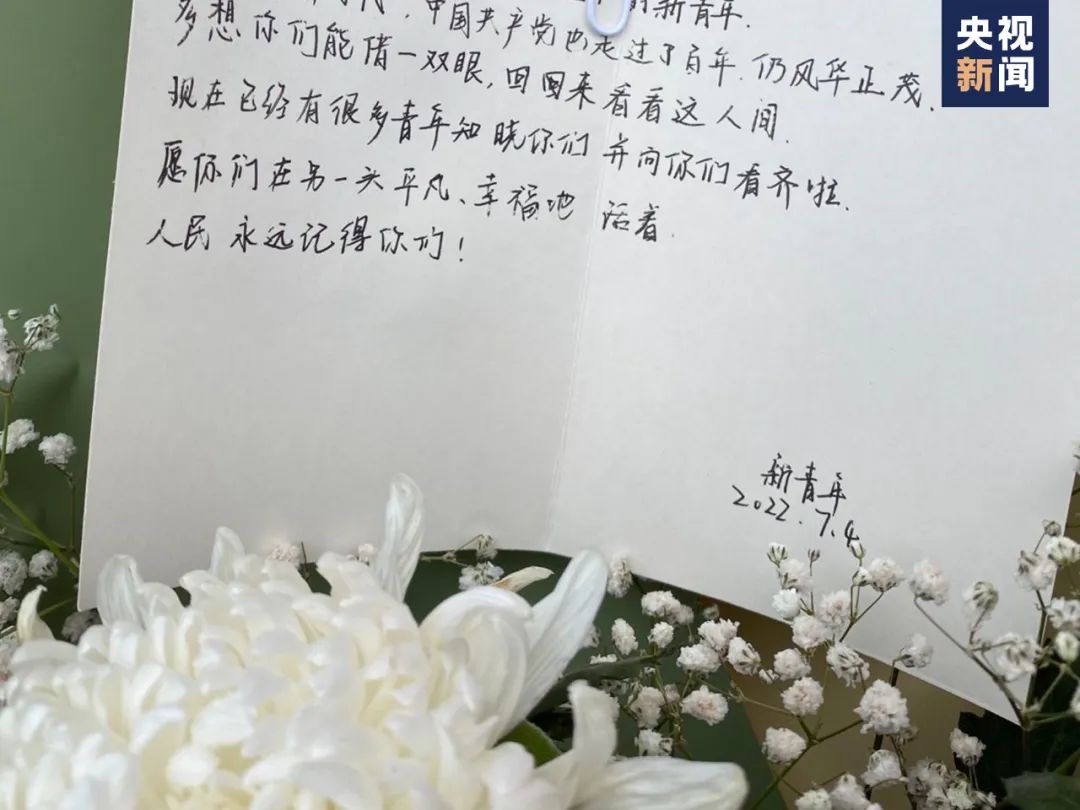 的新青年.
中国共产党也走过了百年.仍风华正茂.
多想你们能借一双眼,回国来看看这人间.
现在已经有很多青年知晓你们并向你们看齐啦.
愿你们在另一头平凡、幸福地活着.
人民永远记得你们!
新青年
2022.7.4
央视
新闻